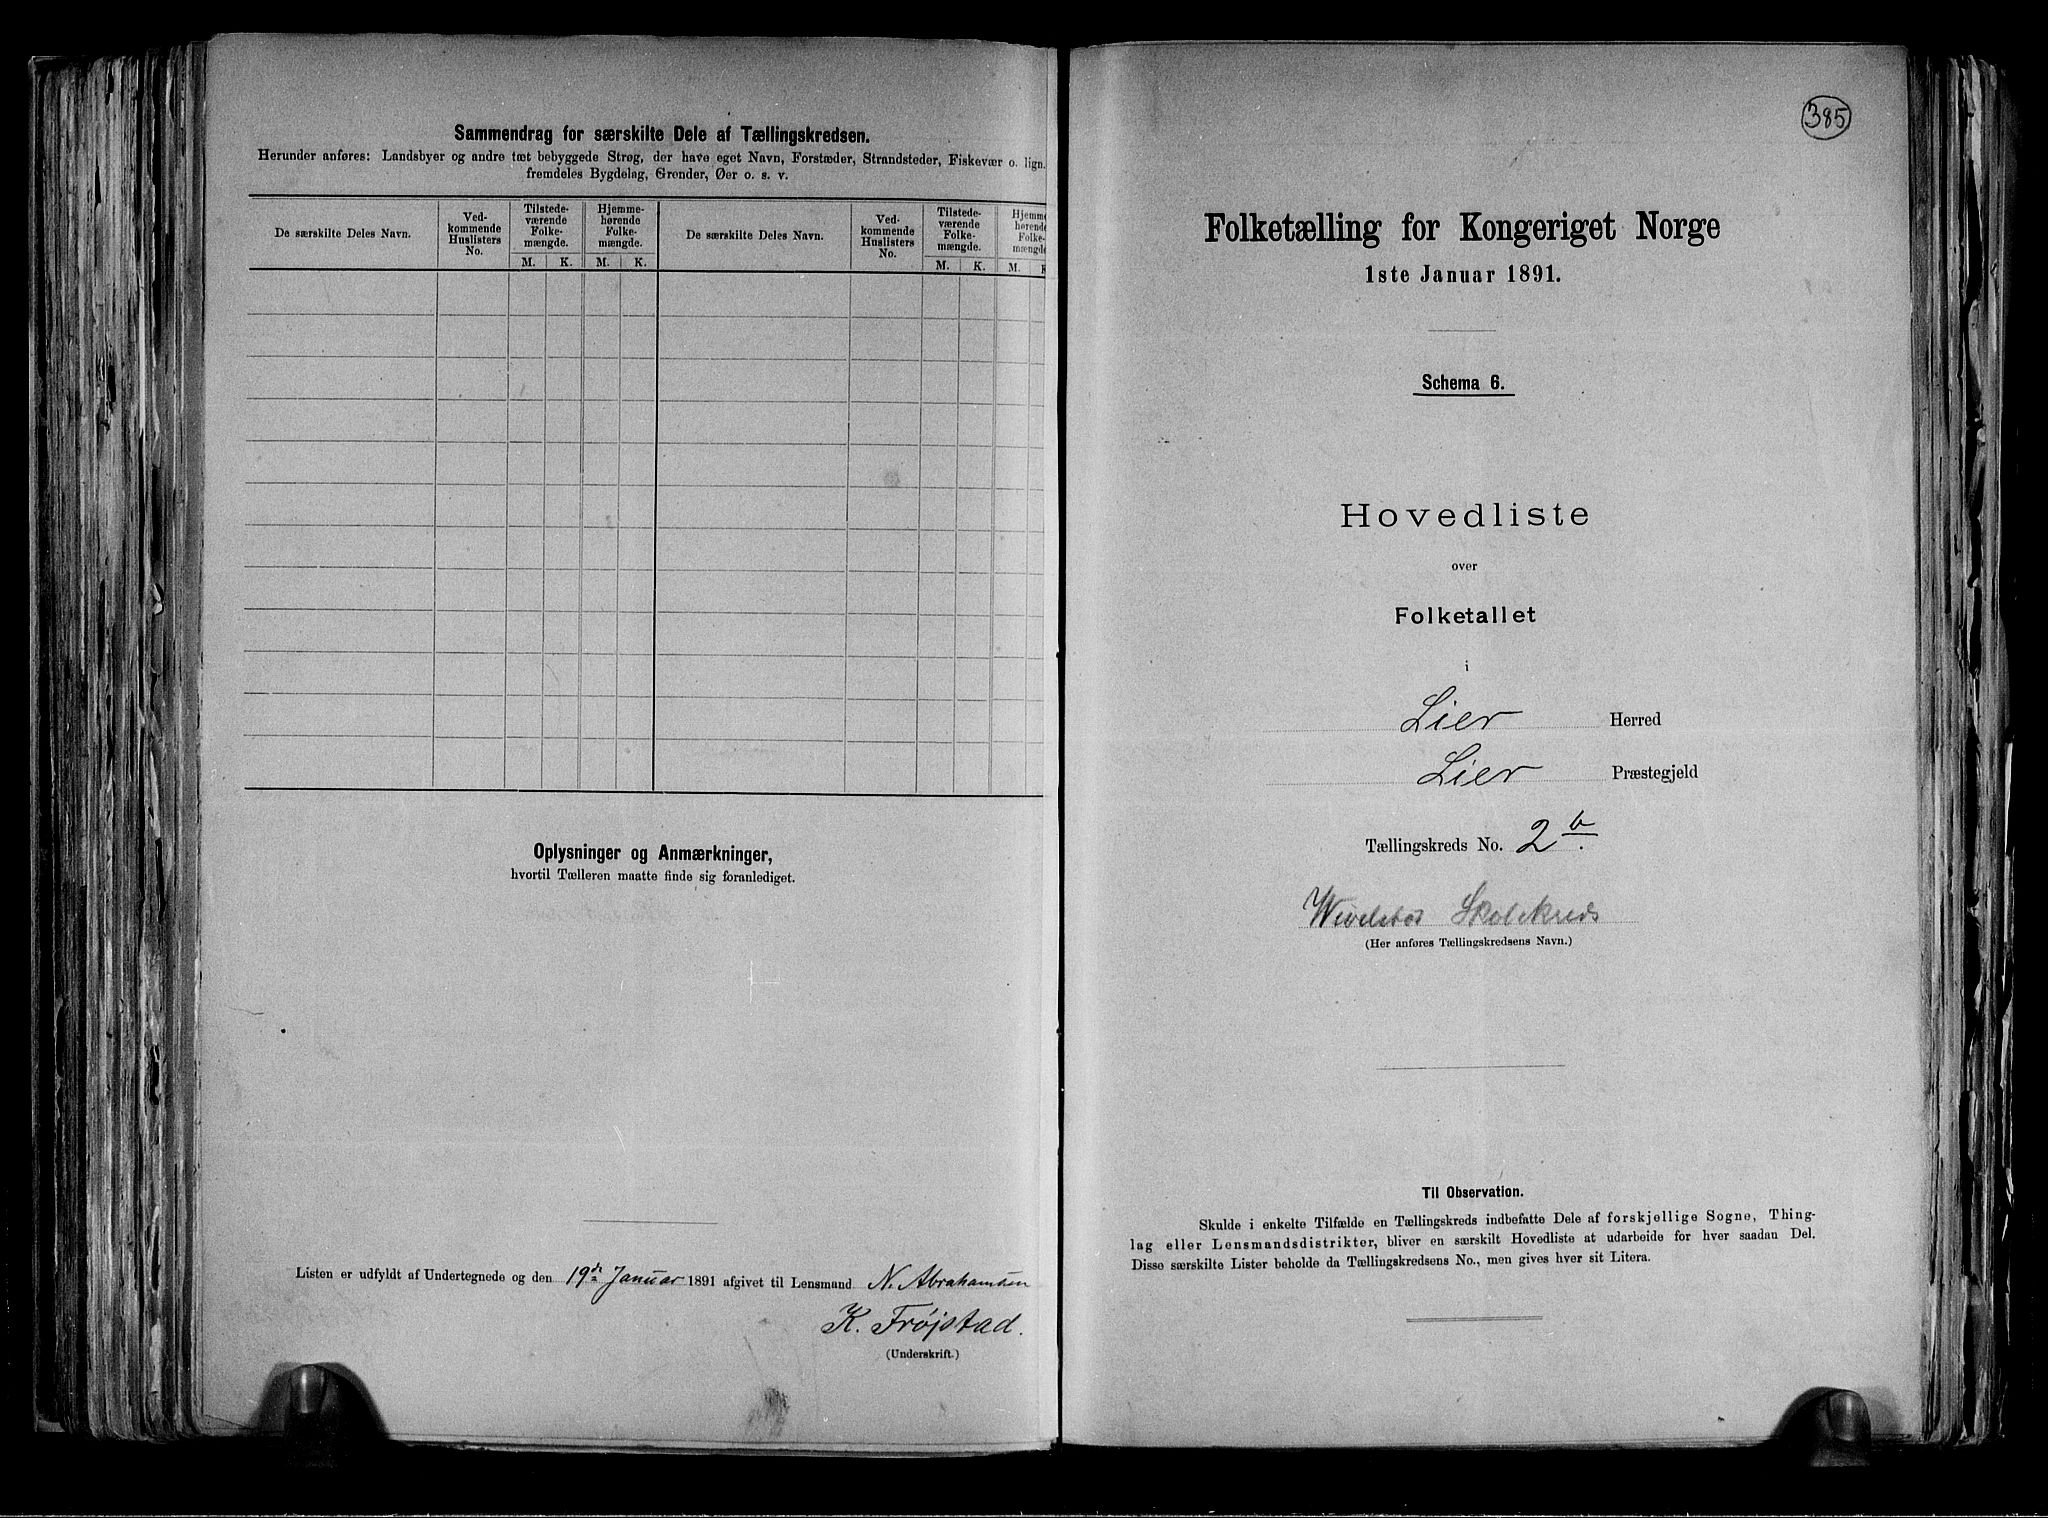 Sammendrag for særskilte Dele af Tællingskredsen.
Herunder anføres: Landsbyer og andre tæt bebyggede Strøg, der have eget Navn, Forstæder, Strandsteder, Fiskevær o. lign.
fremdeles Bygdelag, Grender, Øer o. s. v.
De særskilte Deles Navn.
Ved-
kommende
Huslisters
No.
Tilstede-
værende
Folke-
mængde.
M. K.
Hjemme-
hørende
Folke-
mængde.
M. K.
De særskilte Deles Navn.
Ved-
kommende
Huslisters
No.
Tilstede-
værende
Folke-
mængde.
M. K.
Hjemme
hørende
Folke-
mængde
M. K
Oplysninger og Anmærkninger,
hvortil Tælleren maatte finde sig foranlediget.
Listen er udfyldt af Undertegnede og den 19de Januar 1891 afgivet til Lensmand N. Abrahamsen
K. Frøjstad.
(Underskrift.)
385
Folketælling for Kongeriget Norge
1ste Januar 1891.
Schema 6.
Hovedliste
over
Folketallet
i
Lier Herred
Lier Præstegjeld
Tællingskreds No. 2b.
Skolekreds
(Her anføres Tællingskredsens Navn.)
Til Observation.
Skulde i enkelte Tilfælde en Tællingskreds indbefatte Dele af forskjellige Sogne, Thing-
lag eller Lensmandsdistrikter, bliver en særskilt Hovedliste at udarbeide for hver saadan Del.
Disse særskilte Lister beholde da Tællingskredsens No., men gives hver sit Litera.